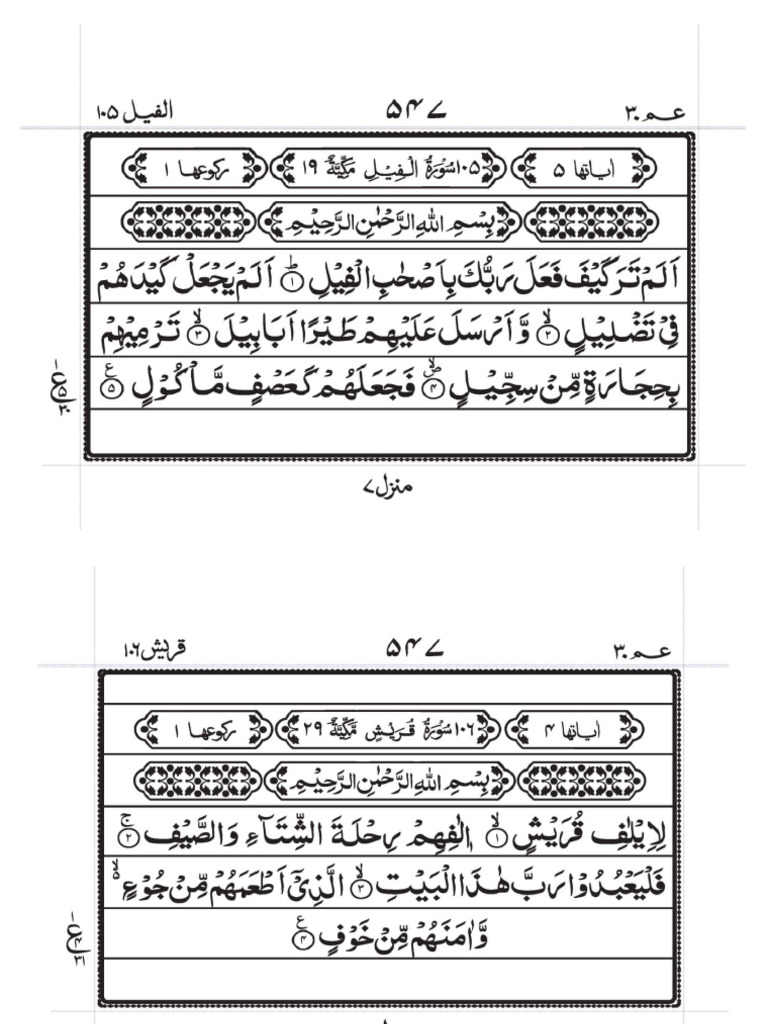 عـم ٣٠ ٥٤٧ الفيل ١٠٥
اٰیاتها ٥ ١٠٥ سُوْرَةُ الْفِيْلِ مَكِّيَّةٌ ١٩ رکوعها ١
بِسْمِ اللّٰهِ الرَّحْمٰنِ الرَّحِيْمِ
اَلَمْ تَرَ كَيْفَ فَعَلَ رَبُّكَ بِاَصْحٰبِ الْفِيْلِ ؕ﴿۱﴾ اَلَمْ يَجْعَلْ كَيْدَهُمْ
فِيْ تَضْلِيْلٍ ۙ﴿۲﴾ وَّاَرْسَلَ عَلَيْهِمْ طَيْرًا اَبَابِيْلَ ۙ﴿۳﴾ تَرْمِيْهِمْ
بِحِجَارَةٍ مِّنْ سِجِّيْلٍ ۪ۙ﴿۴﴾ فَجَعَلَهُمْ كَعَصْفٍ مَّاْكُوْلٍ ﴿۵﴾ ع
منزل ٧
عـم ٣٠ ٥٤٧ قريش ١٠٦
اٰیاتها ٤ ١٠٦ سُوْرَةُ قُرَيْشٍ مَّكِّيَّةٌ ٢٩ رکوعها ١
بِسْمِ اللّٰهِ الرَّحْمٰنِ الرَّحِيْمِ
لِاِيْلٰفِ قُرَيْشٍ ۙ﴿۱﴾ اٖلٰفِهِمْ رِحْلَةَ الشِّتَآءِ وَالصَّيْفِ ۚ﴿۲﴾
فَلْيَعْبُدُوْا رَبَّ هٰذَا الْبَيْتِ ۙ﴿۳﴾ الَّذِيْۤ اَطْعَمَهُمْ مِّنْ جُوْعٍ ۙ۬
وَّاٰمَنَهُمْ مِّنْ خَوْفٍ ﴿۴﴾ ع